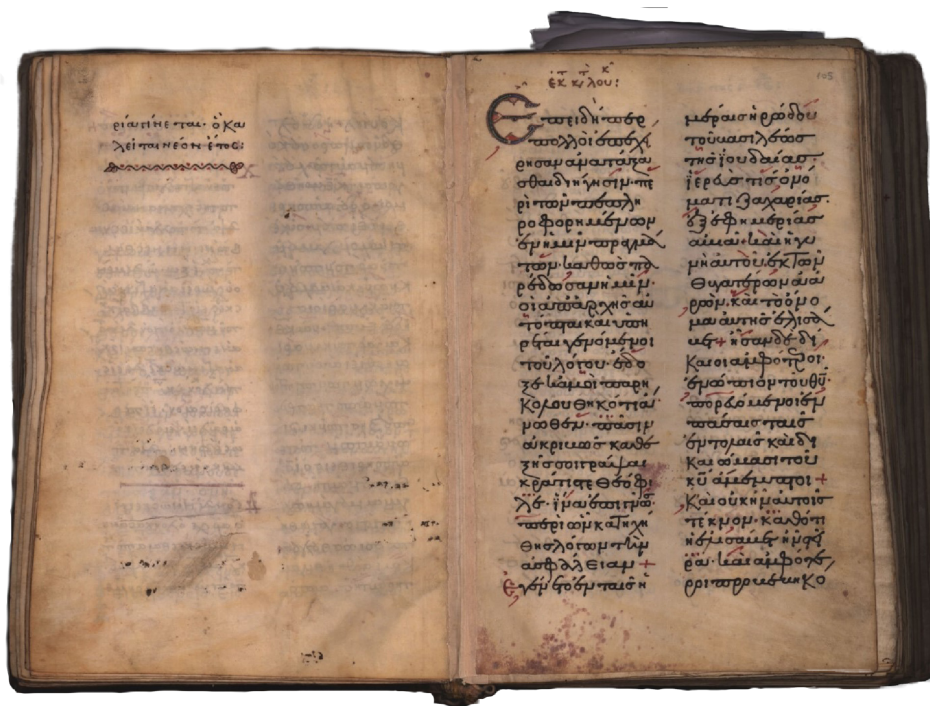 λεῖται νέον ἔτος:
λου:
105
Ἐπειδήπερ
πολλοὶ ἐπεχεί
ρησαν ἀνατάξα
σθαι διήγησιν· πε
ρὶ τῶν πεπλη
ροφορημένων
ἐν ἡμῖν πραγμά
των· καθὼς πα
ρέδωσαν ἡμῖν·
οἱ ἀπαρχῆς αὐ
τόπται καὶ ὑπη
ρέται γενόμενοι
τοῦ λόγου· ἔδο
ξε κἀμοὶ παρη
κολουθηκότι ἄ
νωθεν· πᾶσιν
ἀκριβῶς καθε
ξῆς σοι γράψαι
κράτιστε Θεόφι
λε· ἵνα ἐπιγνῶς
περὶ ὧν κατηχή
θης λόγων τὴν
ἀσφάλειαν +
Ἐγένετο ἐν ταῖς ἡ
μέραις ἡρώδου
τοῦ βασιλέως
τῆς ἰουδαίας·
ἱερεύς τις ὀνό
ματι ζαχαρίας·
ἐξ ἐφημερίας
ἀβιά· καὶ ἡ γυ
νὴ αὐτοῦ ἐκ τῶν
θυγατέρων ἀα
ρών· καὶ τὸ ὄνο
μα αὐτῆς ἐλισά
βετ + ἦσαν δὲ δί
καιοι ἀμφότεροι·
ἐνώπιον τοῦ θυ·
πορευόμενοι ἐν
πάσαις ταῖς
ἐντολαῖς καὶ δι
καιώμασι τοῦ
κυ ἄμεμπτοι +
Καὶ οὐκ ἦν αὐτοῖς
τέκνον· καθότι
ρα· καὶ ἀμφότε
ροι προβεβηκό